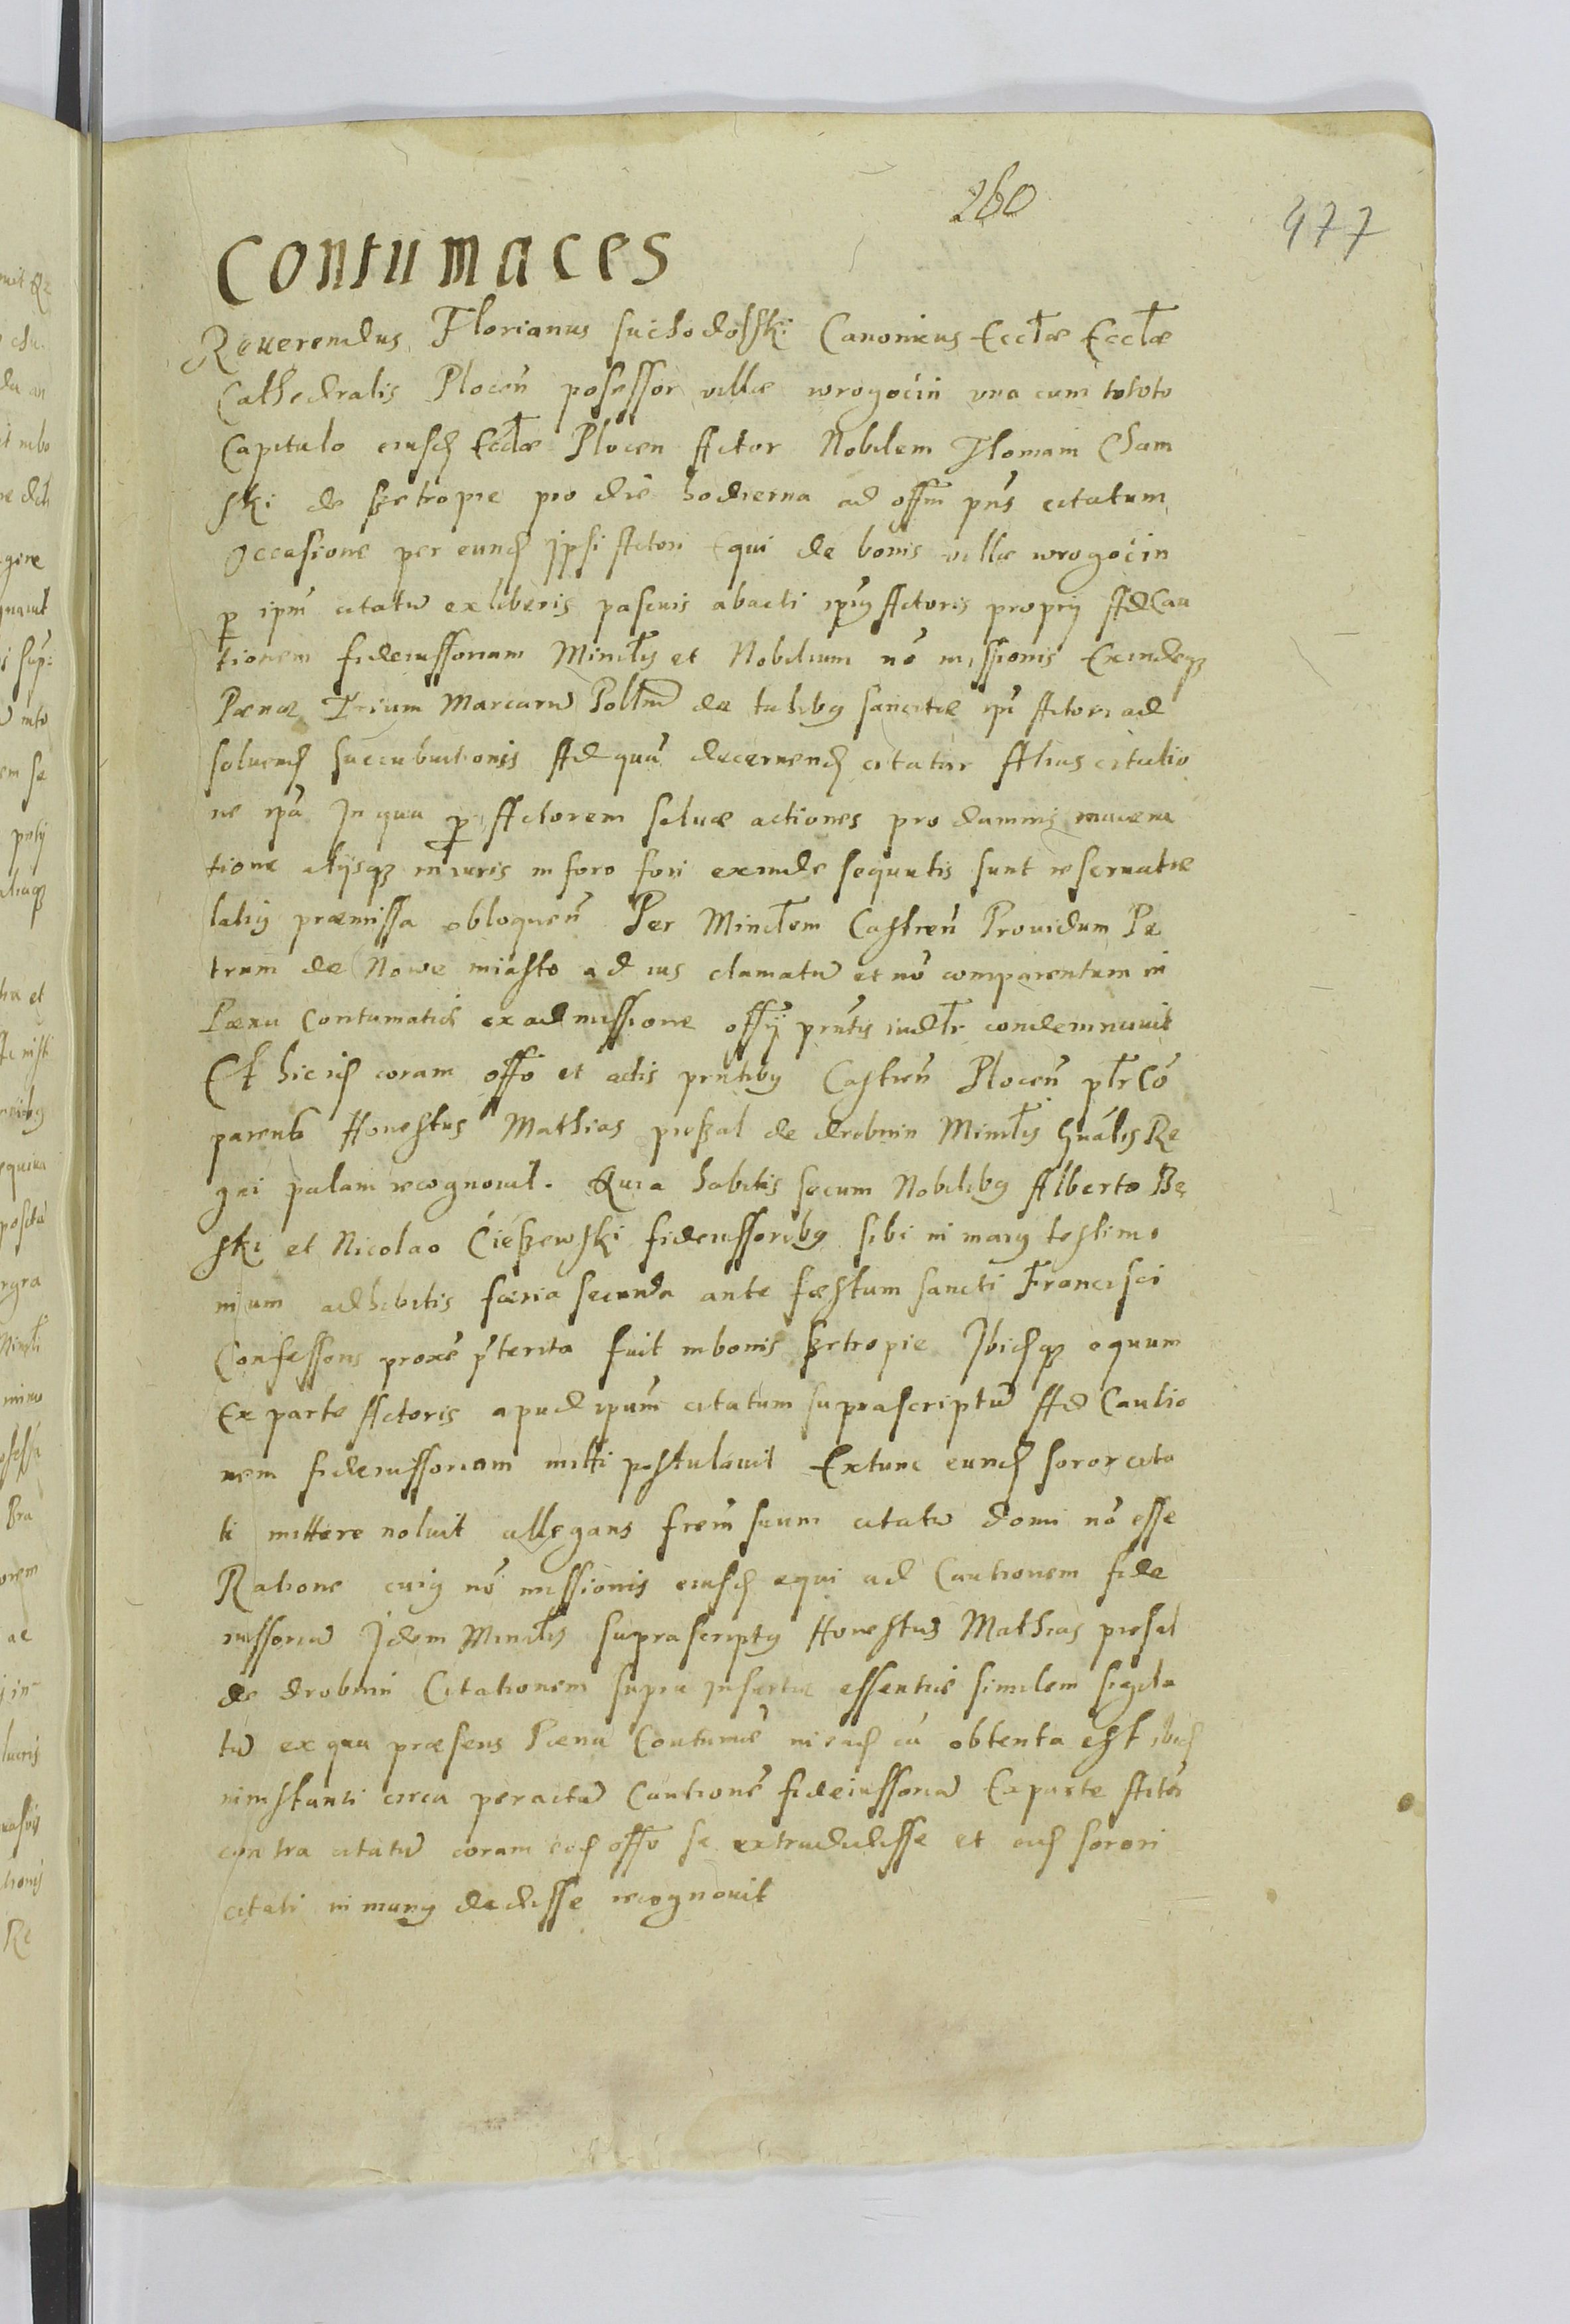 260
477
Contumaces
Reuerendus Florianus suchodolski Canonicus Eccłæ Eccłæ
Cathedralis Plocen̄ posessor villæ wrogocin vna cum tototo
Capitulo eiusd Eccłæ Plocen Actor Nobilem Thomam Cham
ski de Betropie pro die hodierna ad offm pn̄s citatum
Occasione per eund Ipsi Actori Equi de bonis villæ wrogocin
p ipm̄ citatū ex liberis pascuis abacti ipiꝰ Actoris proprij Ad Cau
tionem fideiussoriam Minełis et Nobilium nō missionis Exindeqꝫ
Pænæ Trium Marcarū Połłm de talibꝰ sancitæ ipi Actori ad
soluend succubuitionis Ad quā decernend citatur Alias citatio
ne ipā In qua p Actorem saluæ actiones pro damnis
tione alijsqꝫ iniuris in foro fori exinde sequutis sunt reseruatæ
latiꝰ præmissa obloquen̄ Per Minełem Castren̄ Prouidum Pe
trum de Nowe miasto ad ius clamatū et nō comparentem in
Pæna Contumaciæ ex admissione offij prn̄tis iudłr condemnauit
Et hic id coram offo et actis prntibꝰ Castren̄ Plocen̄ płr Cō
parens Honestus Mathias pieszal de drobnin Minełis Gnālis Re
gni palam recognouit. Quia habitis secum Nobilibꝰ Alberto Bę
ski et Nicolao Cieszewski fideiussoribꝰ sibi in maiꝰ testimo
nium adhibitis færia secunda ante fæstum sancti Francisci
Confessoris proxē pr̄terita fuit in bonis Betropie Ibidqꝫ equum
Ex parte Actoris apud ipum̄ citatum suprascriptū Ad Cautio
nem fideiussoriam mitti postulauit Extunc eund soror cita
ti mittere noluit allegans frem̄ suum citatū domi nō esse
Ratione cuiꝰ nō missionis eiusd equi ad Cautionem fide
iussoriā Idem Minełis suprascriptꝰ Honestus Mathias piesal
de drobnin Citationem supra insertæ essentiæ similem sigila
tū ex qua præsens Pæna Contumē in ead cā obtenta est ibid
ininstanti circa peractā Cautionē fideiussoriā Ex parte Actor
contra citatū coram eod offo se extradidisse et eid sorori
citati in manꝰ dedisse recognouit